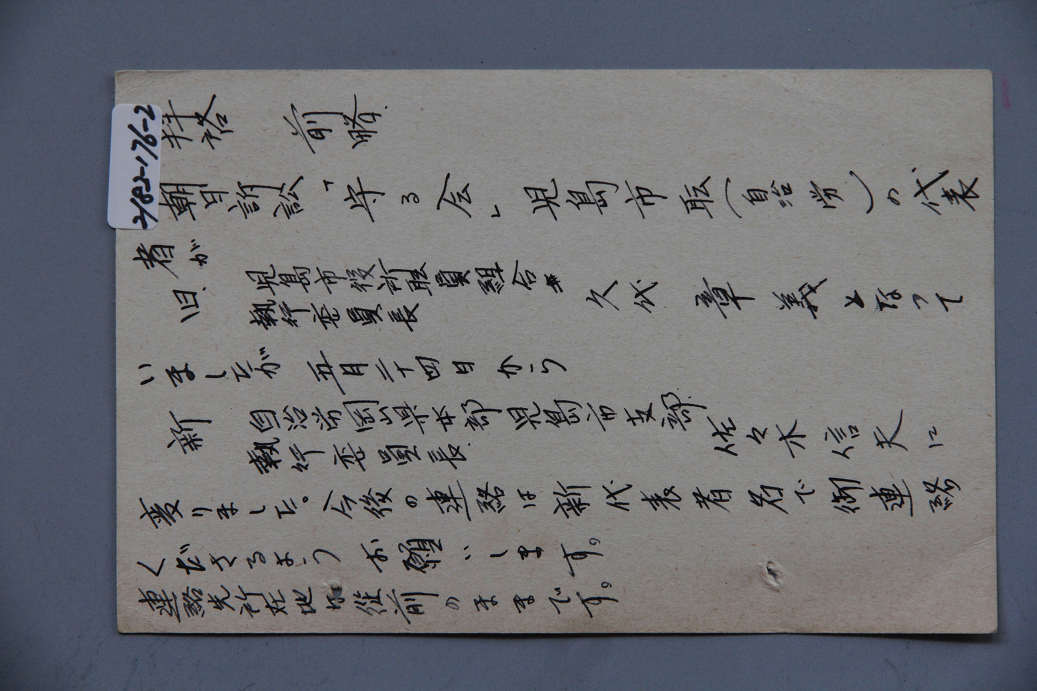 2182-176-2
拝啓 前略
朝日訴訟「守る会」児島市職(自治労)の代表
者が
旧 児島市役所職員組合
執行委員長 久代 章義となって
いましたが 五月二十四日から
新 自治労岡山県本部児島市支部
執行委員長 佐々木信夫に
変りました。今後の連絡は新代表者名で御連絡
くださるよう お願いします。
連絡先所在地は従前のままです。